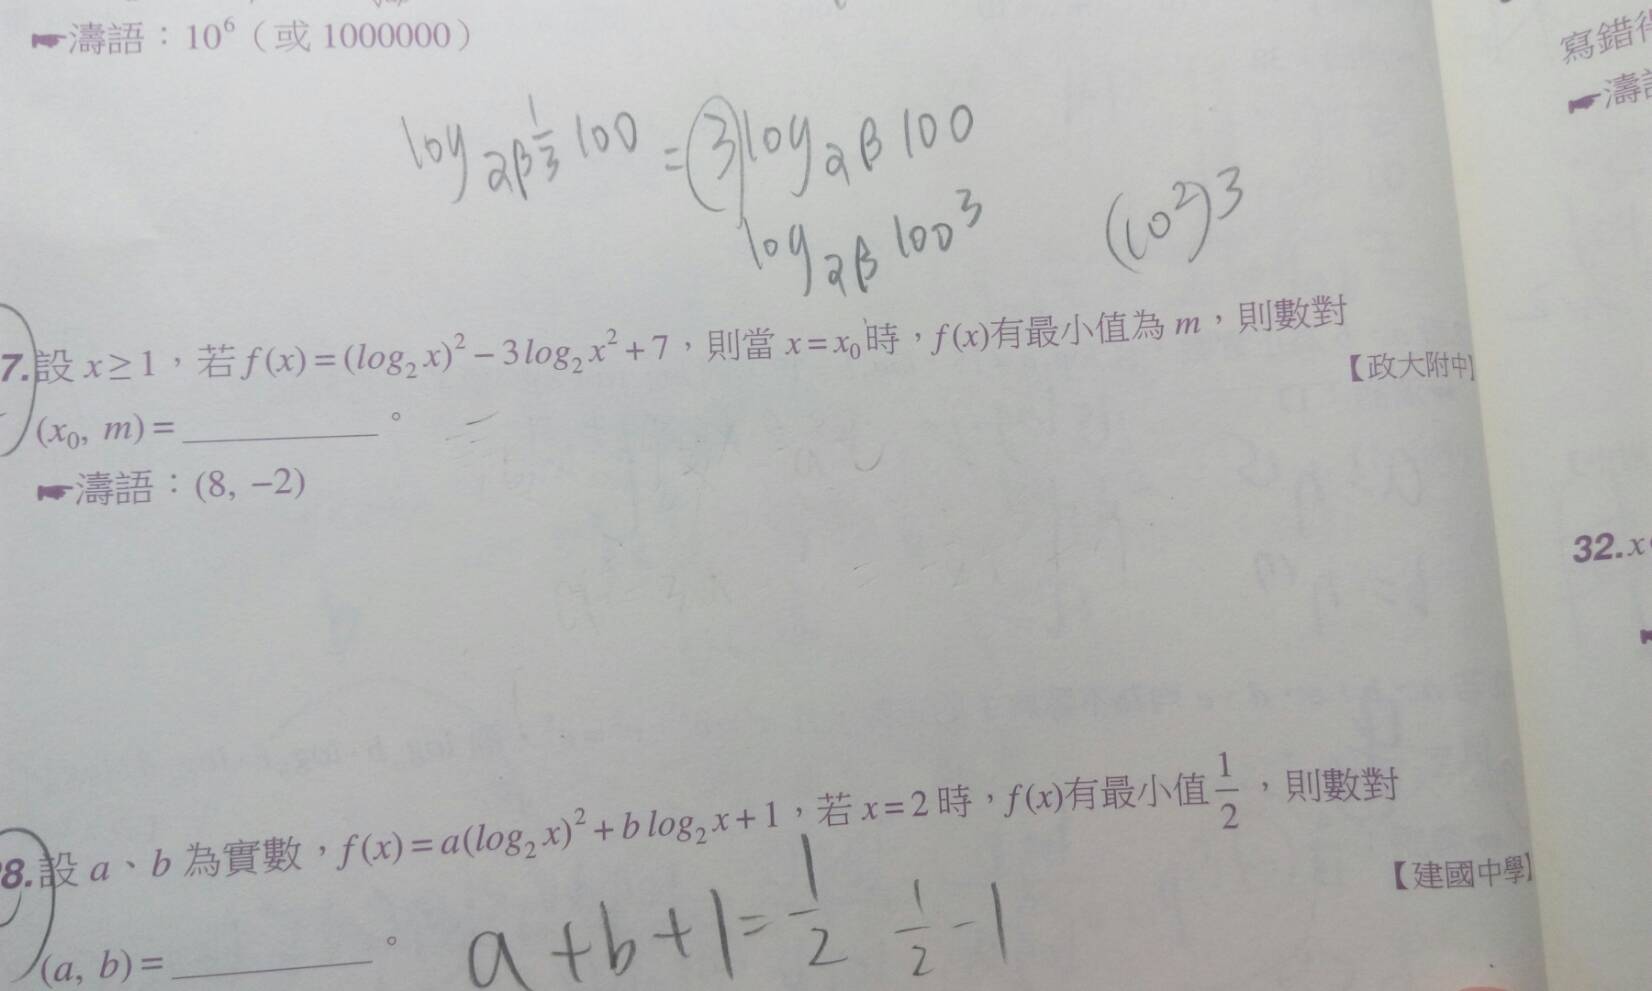 濤語：10⁶（或 1000000）
寫錯
濤
log_{αβ^{1/3}} 100 = 3 log_{αβ} 100
log_{αβ} 100³
(10²)³
7. 設 x ≥ 1，若 f(x) = (log₂x)² − 3log₂x² + 7，則當 x = x₀ 時，f(x)有最小值為 m，則數對
【政大附中】
(x₀, m) = ________。
濤語：(8, −2)
32. x
8. 設 a、b 為實數，f(x) = a(log₂x)² + b log₂x + 1，若 x = 2 時，f(x)有最小值 1/2，則數對
【建國中學】
(a, b) = ________。
a + b + 1 = 1/2
1/2 − 1